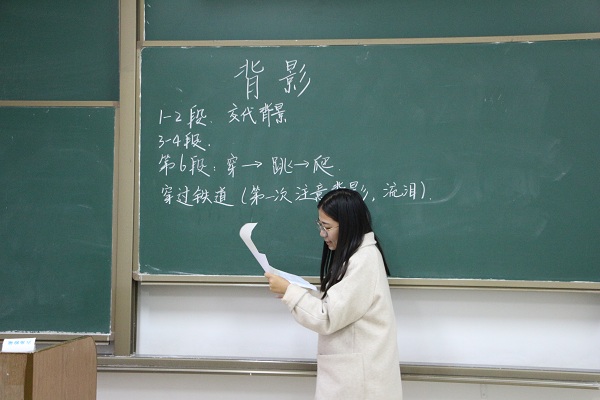 背影
1-2段. 交代背景
3-4段.
第6段:穿→跳→爬.
穿过铁道(第一次注意背影,流泪).